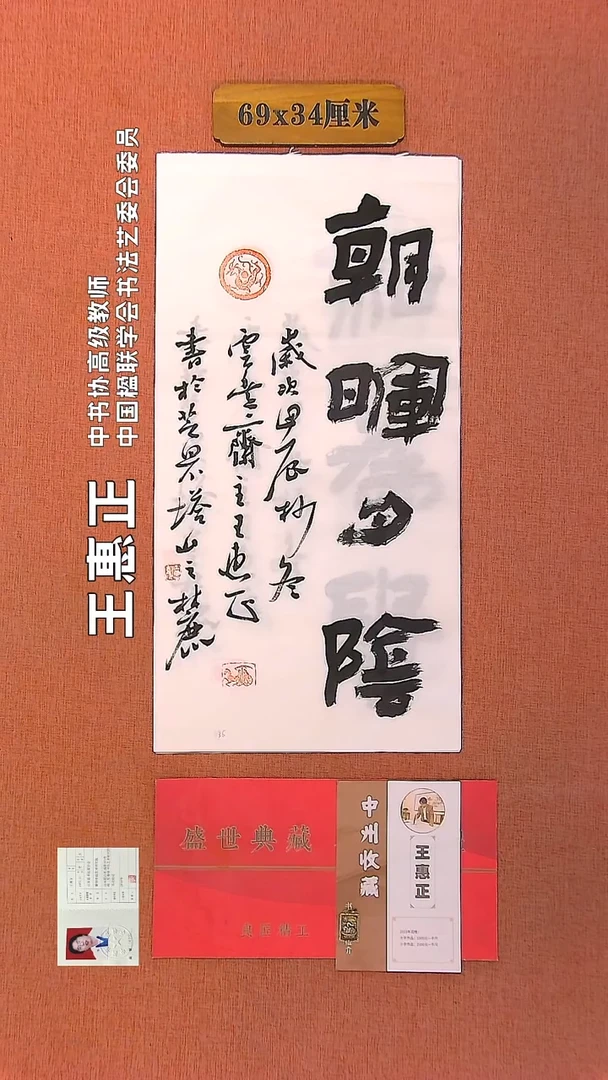 69x34厘米
中书协高级教师
中国楹联学会书法艺委会委员
王惠正
朝暉夕陰
歲次甲辰杪冬
雲臺齋主王惠正
書於芒果塔山之麓
盛世典藏
中州收藏
王惠正